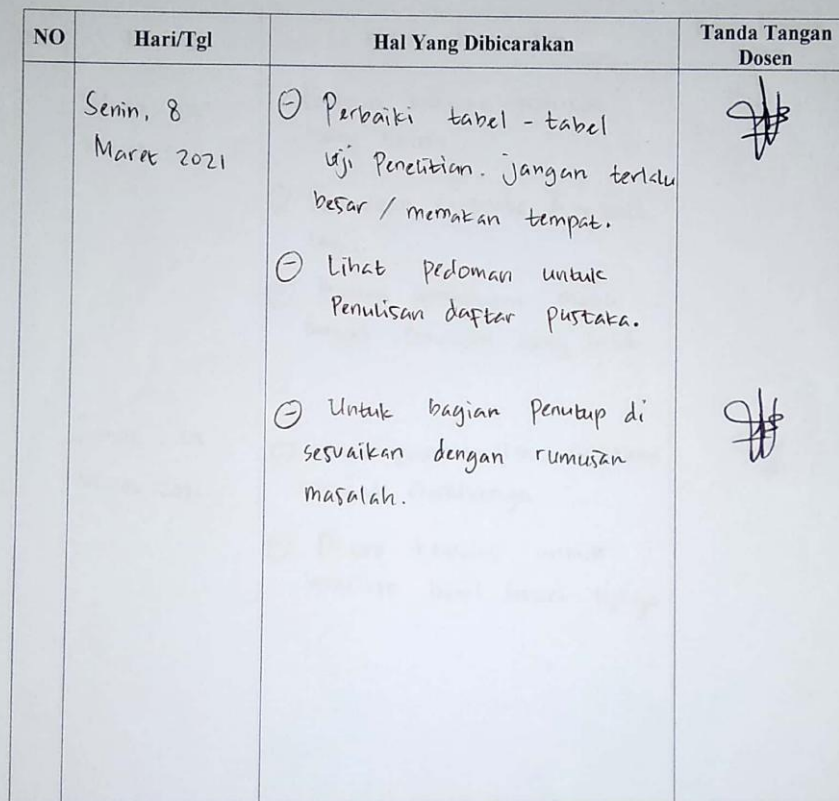 NO Hari/Tgl Hal Yang Dibicarakan Tanda Tangan Dosen
Senin, 8
Maret 2021
⊖ Perbaiki tabel - tabel
uji Penelitian. jangan terlalu
besar / memakan tempat.
⊖ Lihat pedoman untuk
Penulisan daftar pustaka.
⊖ Untuk bagian Penutup di
sesuaikan dengan rumusan
masalah.